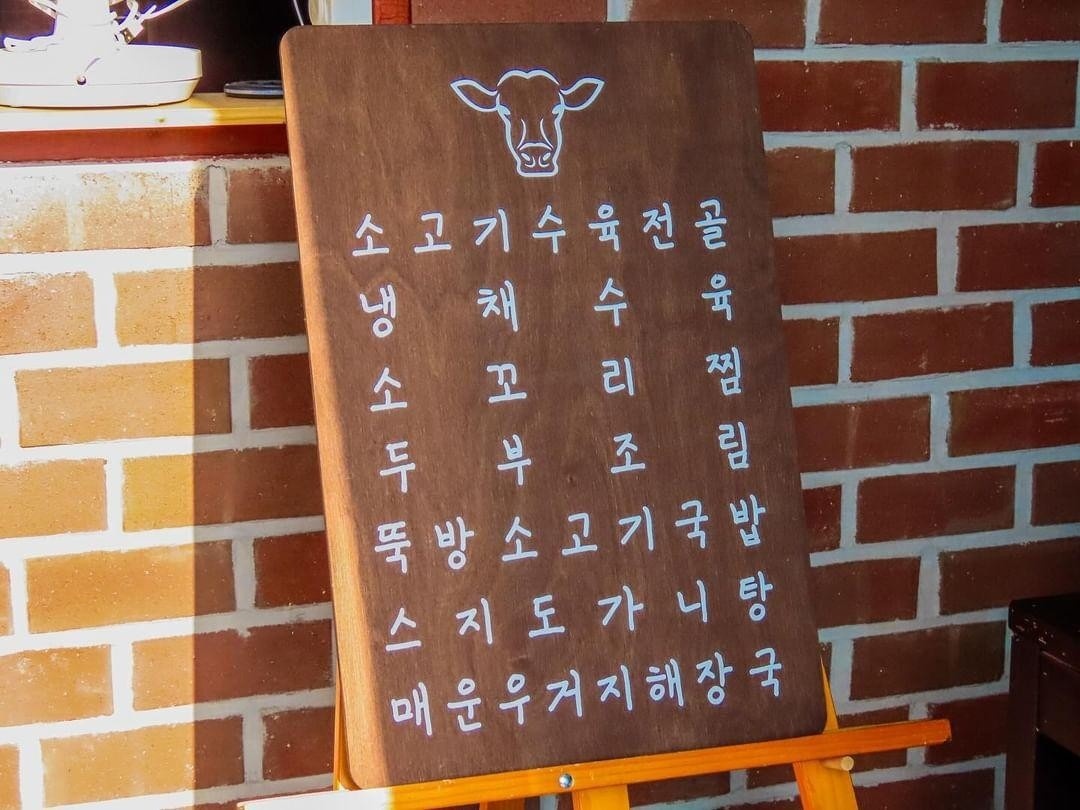 소고기수육전골
냉채수육
소꼬리찜
두부조림
뚝방소고기국밥
스지도가니탕
매운우거지해장국